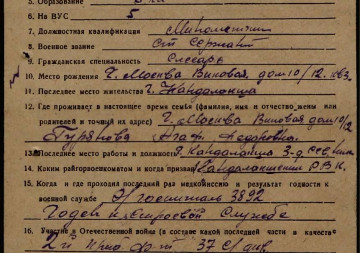 5. Образование
6. На ВУС 5
7. Должностная квалификация Минометчик
8. Военное звание Ст Сержант
9. Гражданская специальность Слесарь
10. Место рождения г. Москва Виновая дом 10/12. кв. 63
11. Последнее место жительства г. Кандалакша
12. Где проживает в настоящее время семья (фамилия, имя и отчество жены или
родителей и точный их адрес) г. Москва Виновая дом 10/12
Гурянова Агаф. Федоровна.
13. Последнее место работы и должность г. Кандалакша
14. Каким райгорвоенкоматом и когда призван Кандалакшским Р.В.К.
15. Когда и где проходил последний раз медкомиссию и результат годности к
военной службе Эгоспиталь 3892
Годен к строевой службе
16. Участие в Отечественной войне (в составе какой последней части и в качестве
2й 37 С/див.